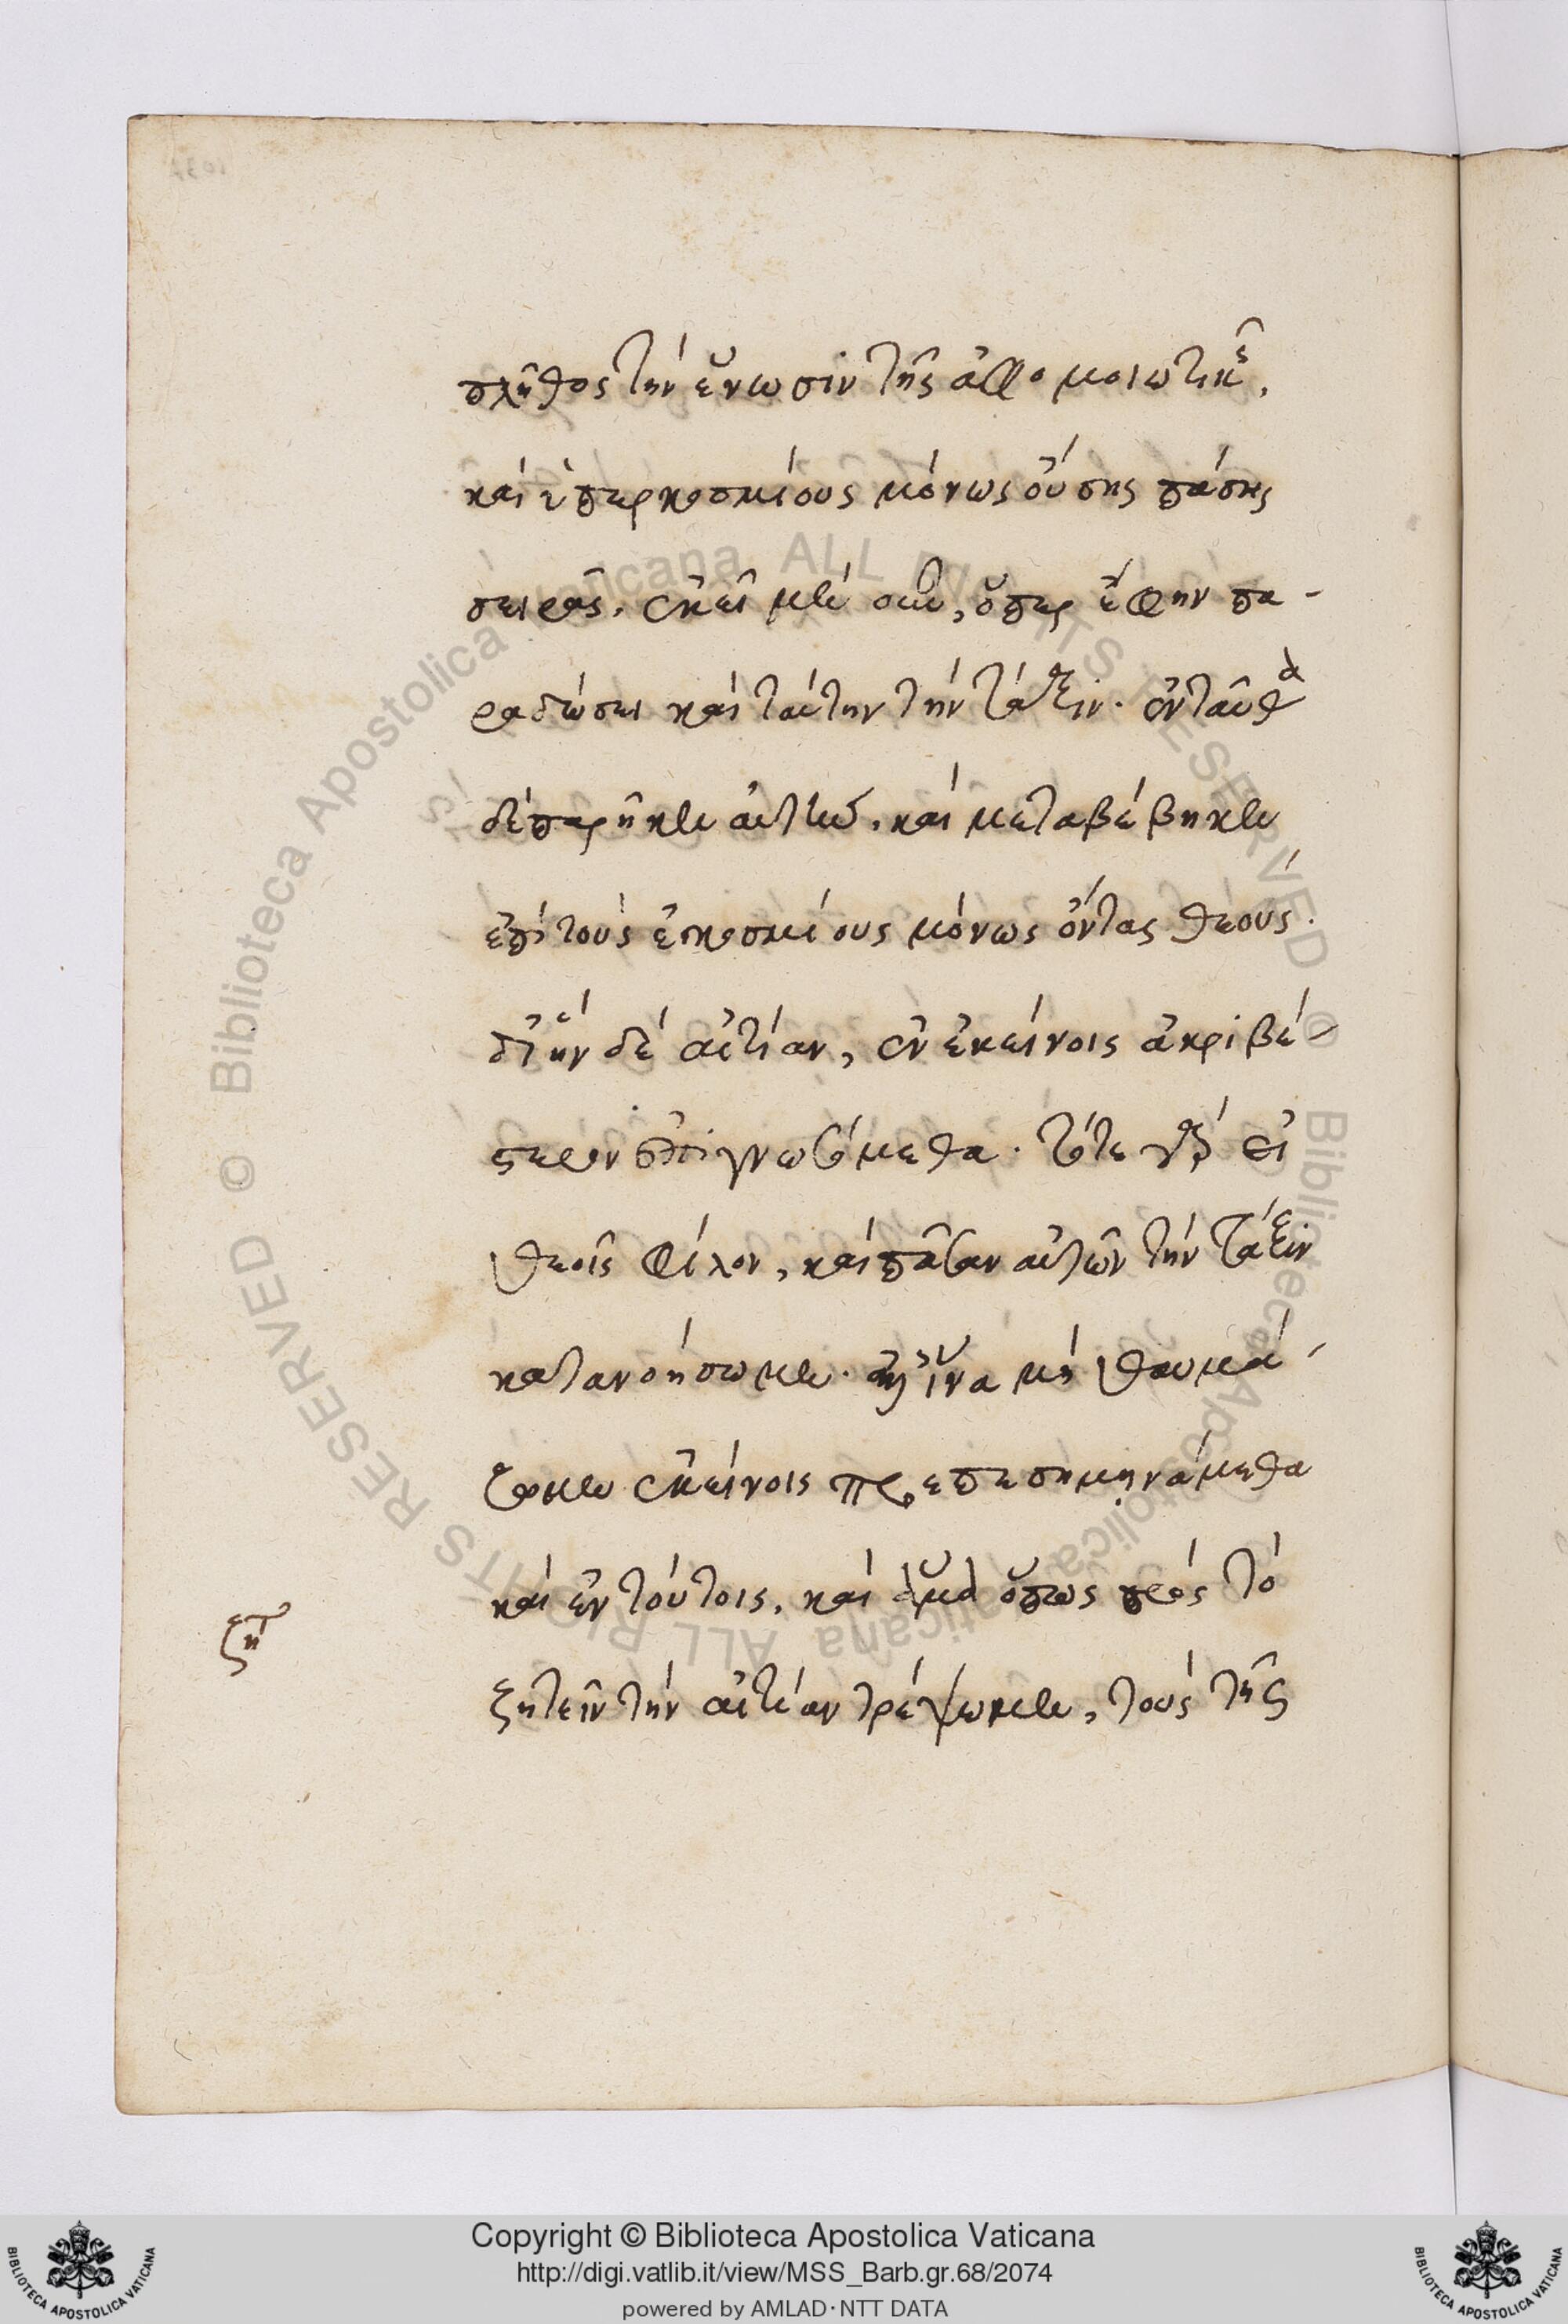 πλῆθος τὴν ἕνωσιν τῆς ἀφομοιωτικῆς,
καὶ ὑπερκοσμίους μόνως οὔσης πάσης
σειρᾶς. ἐκεῖ μὲν οὖν, ὅπερ ἔφην πα-
ραδώσει καὶ ταύτην τὴν τάξιν. ἐνταῦθα
δὲ παρῆκεν αὐτὴν. καὶ μεταβέβηκεν
ἐπὶ τοὺς ἐγκοσμίους μόνως ὄντας θεούς.
δι' ἣν δὲ αἰτίαν, ἐν ἐκείνοις ἀκριβέ-
στερον ἐπιγνωσόμεθα. τότε γὰρ εἰ
θεοῖς φίλον, καὶ πᾶσαν αὐτῶν τὴν τάξιν
κατανοήσωμεν. ἀλλ' ἵνα μὴ θαυμά-
ζομεν ἐκείνοις προεπεσημηνάμεθα
καὶ ἐν τούτοις. καὶ ἅμα ὅπως πρὸς τὸ
ζητ
ζητεῖν τὴν αἰτίαν τρέψωμεν, τοὺς τῆς
Copyright © Biblioteca Apostolica Vaticana
http://digi.vatlib.it/view/MSS_Barb.gr.68/2074
powered by AMLAD·NTT DATA
© Biblioteca Apostolica Vaticana ALL RIGHTS RESERVED
© Biblioteca Apostolica Vaticana ALL RIGHTS RESERVED
BIBLIOTECA APOSTOLICA VATICANA
BIBLIOTECA APOSTOLICA VATICANA